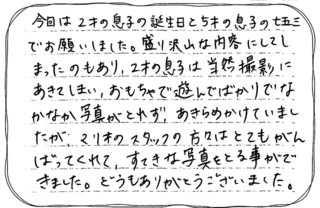 今回は2才の息子の誕生日と5才の息子の七五三
でお願いしました。盛り沢山な内容にしてし
まったのもあり、2才の息子は当然撮影に
あきてしまい、おもちゃで遊んでばかりでな
かなか写真がとれず、あきらめかけていまし
たが、マリオのスタッフの方々はとてもがん
ばってくれて、すてきな写真をとる事がで
きました。どうもありがとうございました。